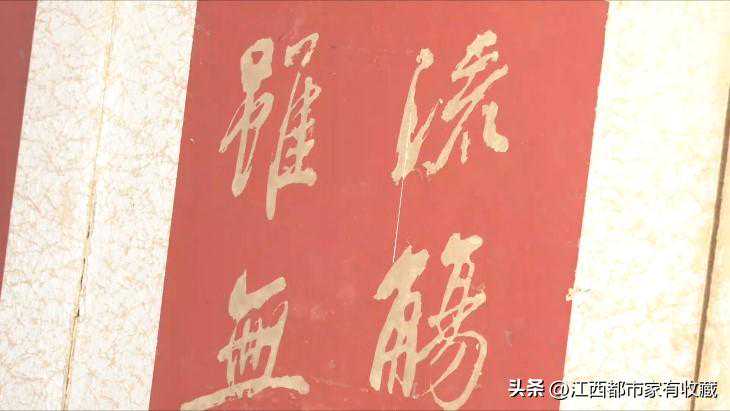 流觴
雖無
头条 @江西都市家有收藏